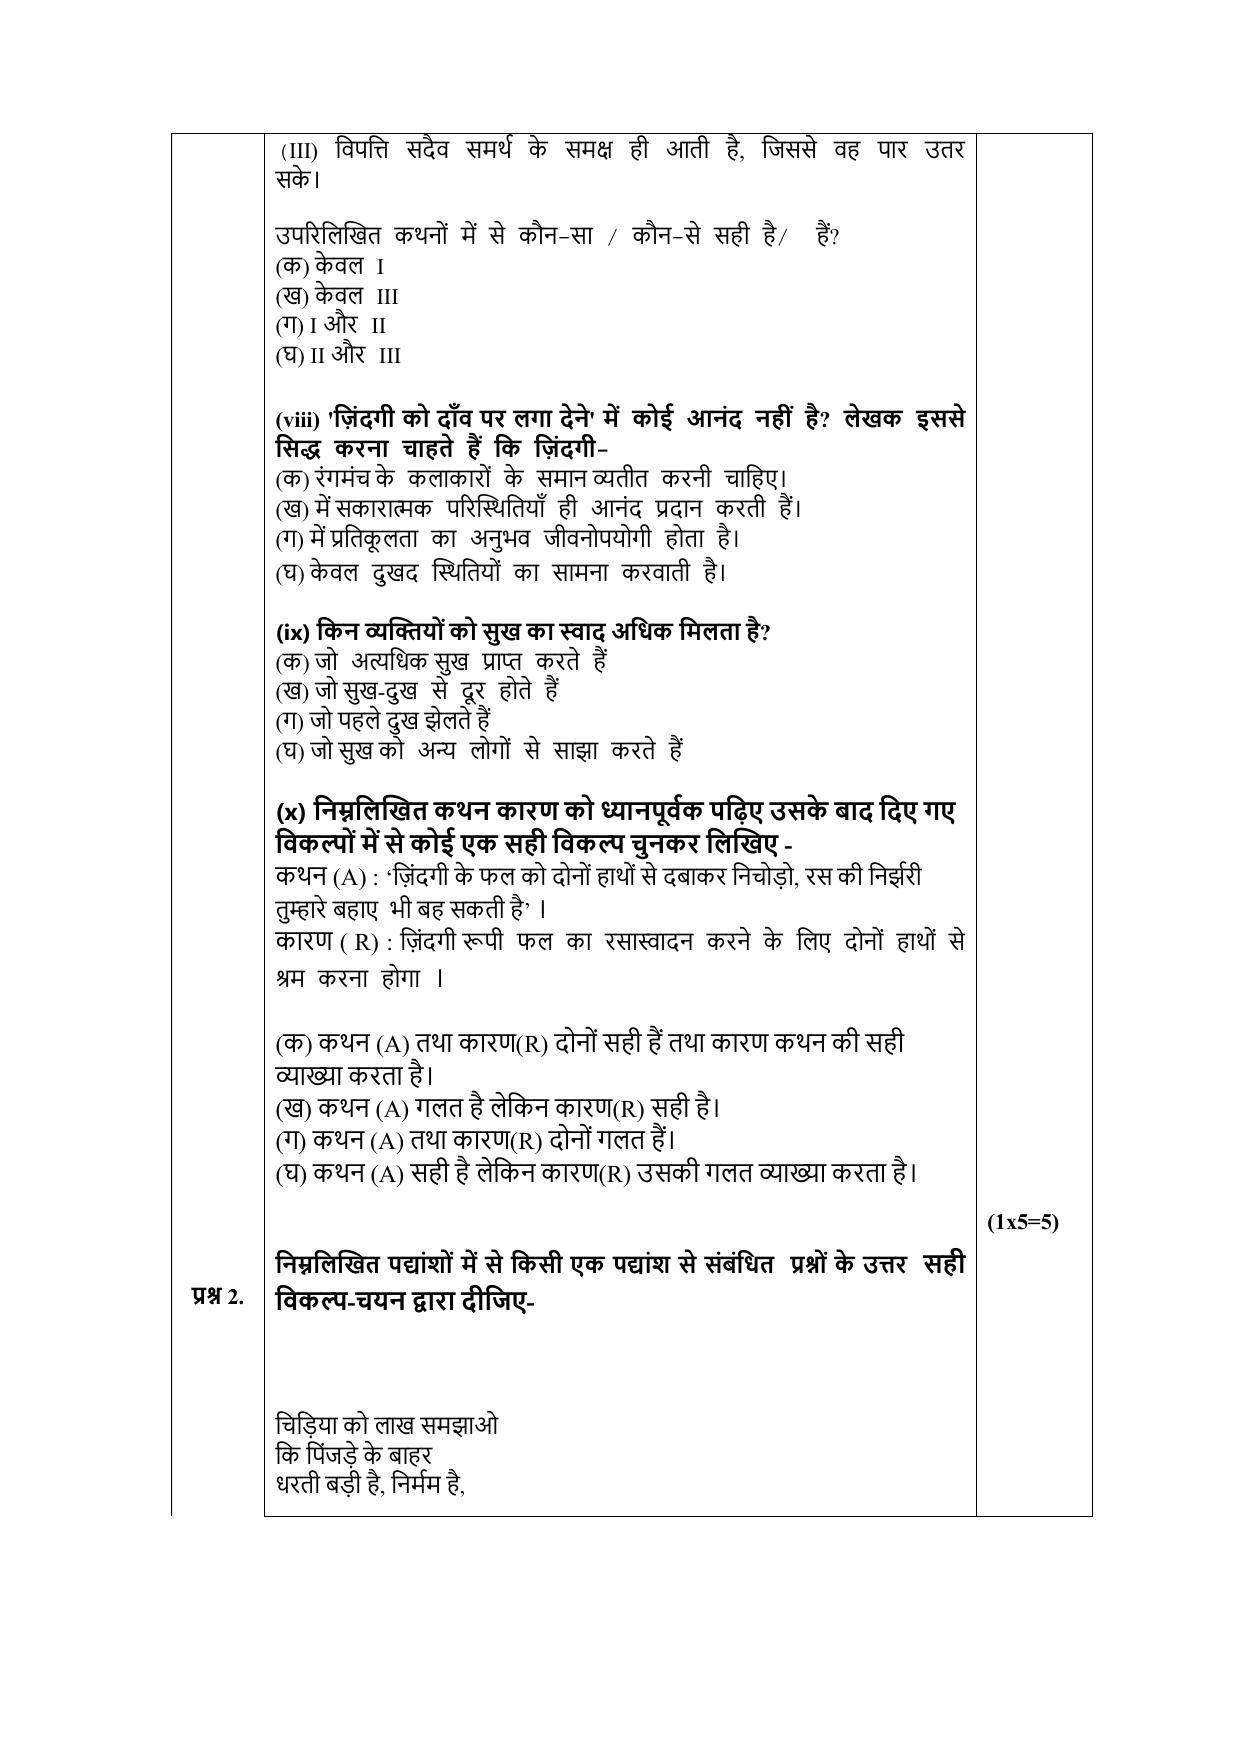 (III) विपत्ति सदैव समर्थ के समक्ष ही आती है, जिससे वह पार उतर
सके।
उपरिलिखित कथनों में से कौन-सा / कौन-से सही है/ हैं?
(क) केवल I
(ख) केवल III
(ग) I और II
(घ) II और III
(viii) 'ज़िंदगी को दाँव पर लगा देने' में कोई आनंद नहीं है? लेखक इससे
सिद्ध करना चाहते हैं कि ज़िंदगी-
(क) रंगमंच के कलाकारों के समान व्यतीत करनी चाहिए।
(ख) में सकारात्मक परिस्थितियाँ ही आनंद प्रदान करती हैं।
(ग) में प्रतिकूलता का अनुभव जीवनोपयोगी होता है।
(घ) केवल दुखद स्थितियों का सामना करवाती है।
(ix) किन व्यक्तियों को सुख का स्वाद अधिक मिलता है?
(क) जो अत्यधिक सुख प्राप्त करते हैं
(ख) जो सुख-दुख से दूर होते हैं
(ग) जो पहले दुख झेलते हैं
(घ) जो सुख को अन्य लोगों से साझा करते हैं
(x) निम्नलिखित कथन कारण को ध्यानपूर्वक पढ़िए उसके बाद दिए गए
विकल्पों में से कोई एक सही विकल्प चुनकर लिखिए -
कथन (A) : ‘ज़िंदगी के फल को दोनों हाथों से दबाकर निचोड़ो, रस की निर्झरी
तुम्हारे बहाए भी बह सकती है’ ।
कारण ( R) : ज़िंदगी रूपी फल का रसास्वादन करने के लिए दोनों हाथों से
श्रम करना होगा ।
(क) कथन (A) तथा कारण(R) दोनों सही हैं तथा कारण कथन की सही
व्याख्या करता है।
(ख) कथन (A) गलत है लेकिन कारण(R) सही है।
(ग) कथन (A) तथा कारण(R) दोनों गलत हैं।
(घ) कथन (A) सही है लेकिन कारण(R) उसकी गलत व्याख्या करता है।
(1x5=5)
निम्नलिखित पद्यांशों में से किसी एक पद्यांश से संबंधित प्रश्नों के उत्तर सही
प्रश्न 2. विकल्प-चयन द्वारा दीजिए-
चिड़िया को लाख समझाओ
कि पिंजड़े के बाहर
धरती बड़ी है, निर्मम है,